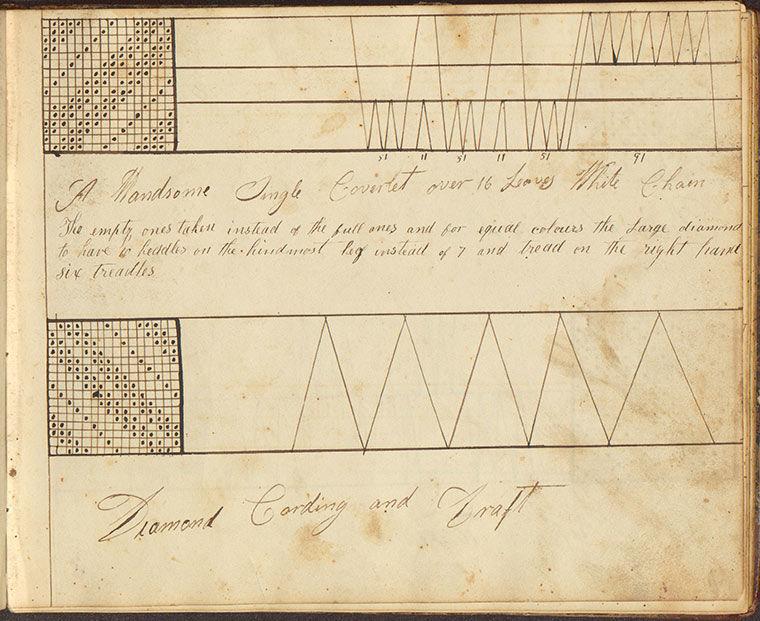 51 11 51 11 51 91
A Handsome Single Coverlet over 16 Leaves White Chain
The empty ones taken instead of the full ones and for equal colours the Large diamond
to have 10 heddles on the hindmost leaf instead of 7 and tread on the right hand
six treadles
Diamond Cording and Draft